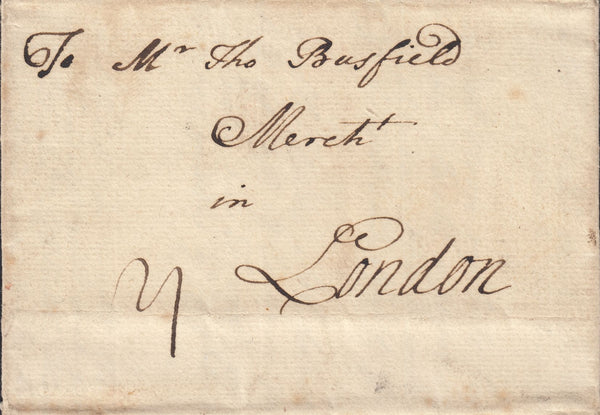 To Mr Tho Busfield
Mercht
in
London